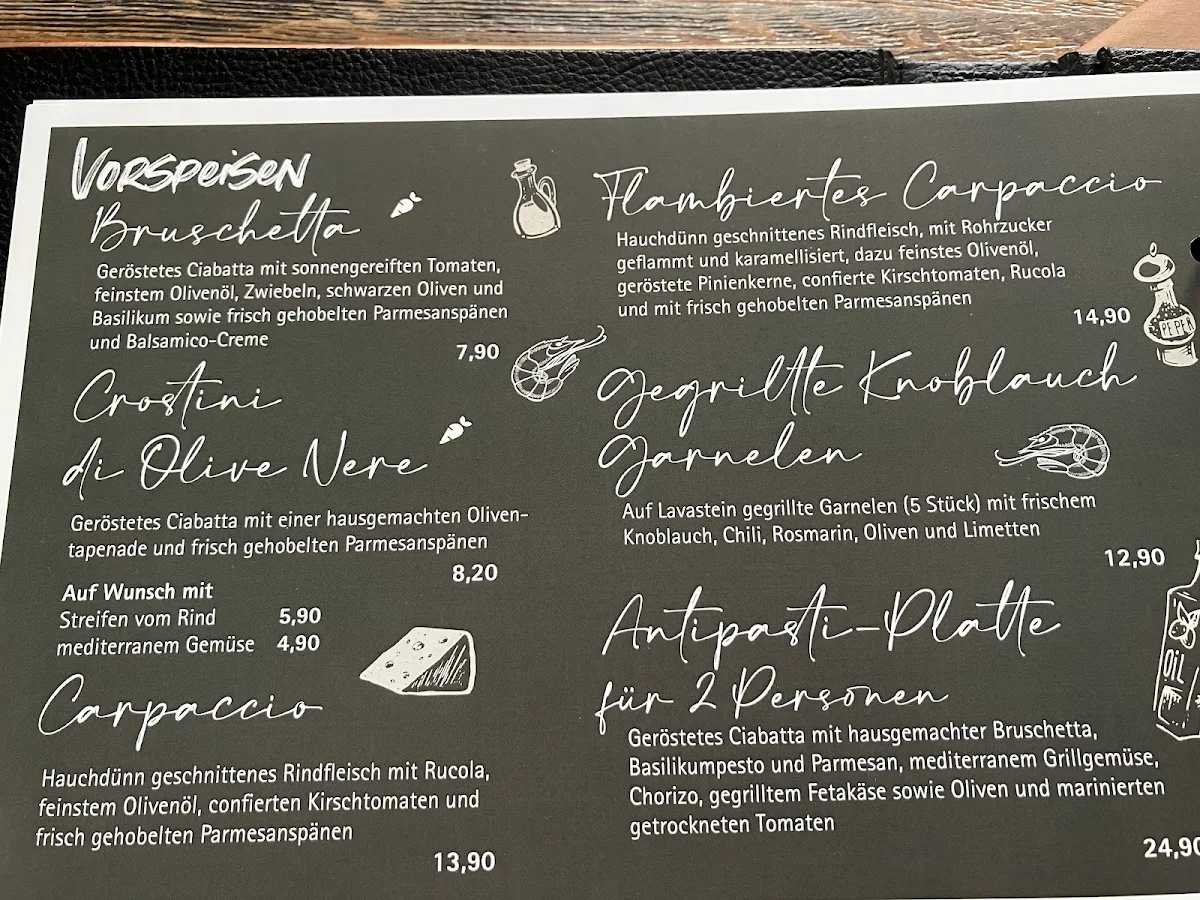 Vorspeisen
Bruschetta
Geröstetes Ciabatta mit sonnengereiften Tomaten,
feinstem Olivenöl, Zwiebeln, schwarzen Oliven und
Basilikum sowie frisch gehobelten Parmesanspänen
und Balsamico-Creme
7,90
Crostini
di Olive Nere
Geröstetes Ciabatta mit einer hausgemachten Oliven-
tapenade und frisch gehobelten Parmesanspänen
8,20
Auf Wunsch mit
Streifen vom Rind 5,90
mediterranem Gemüse 4,90
Carpaccio
Hauchdünn geschnittenes Rindfleisch mit Rucola,
feinstem Olivenöl, confierten Kirschtomaten und
frisch gehobelten Parmesanspänen
13,90
Flambiertes Carpaccio
Hauchdünn geschnittenes Rindfleisch, mit Rohrzucker
geflammt und karamellisiert, dazu feinstes Olivenöl,
geröstete Pinienkerne, confierte Kirschtomaten, Rucola
und mit frisch gehobelten Parmesanspänen
14,90
PEPER
Gegrilltte Knoblauch
Garnelen
Auf Lavastein gegrillte Garnelen (5 Stück) mit frischem
Knoblauch, Chili, Rosmarin, Oliven und Limetten
12,90
Antipasti-Platte
für 2 Personen
OiL
Geröstetes Ciabatta mit hausgemachter Bruschetta,
Basilikumpesto und Parmesan, mediterranem Grillgemüse,
Chorizo, gegrilltem Fetakäse sowie Oliven und marinierten
getrockneten Tomaten
24,90